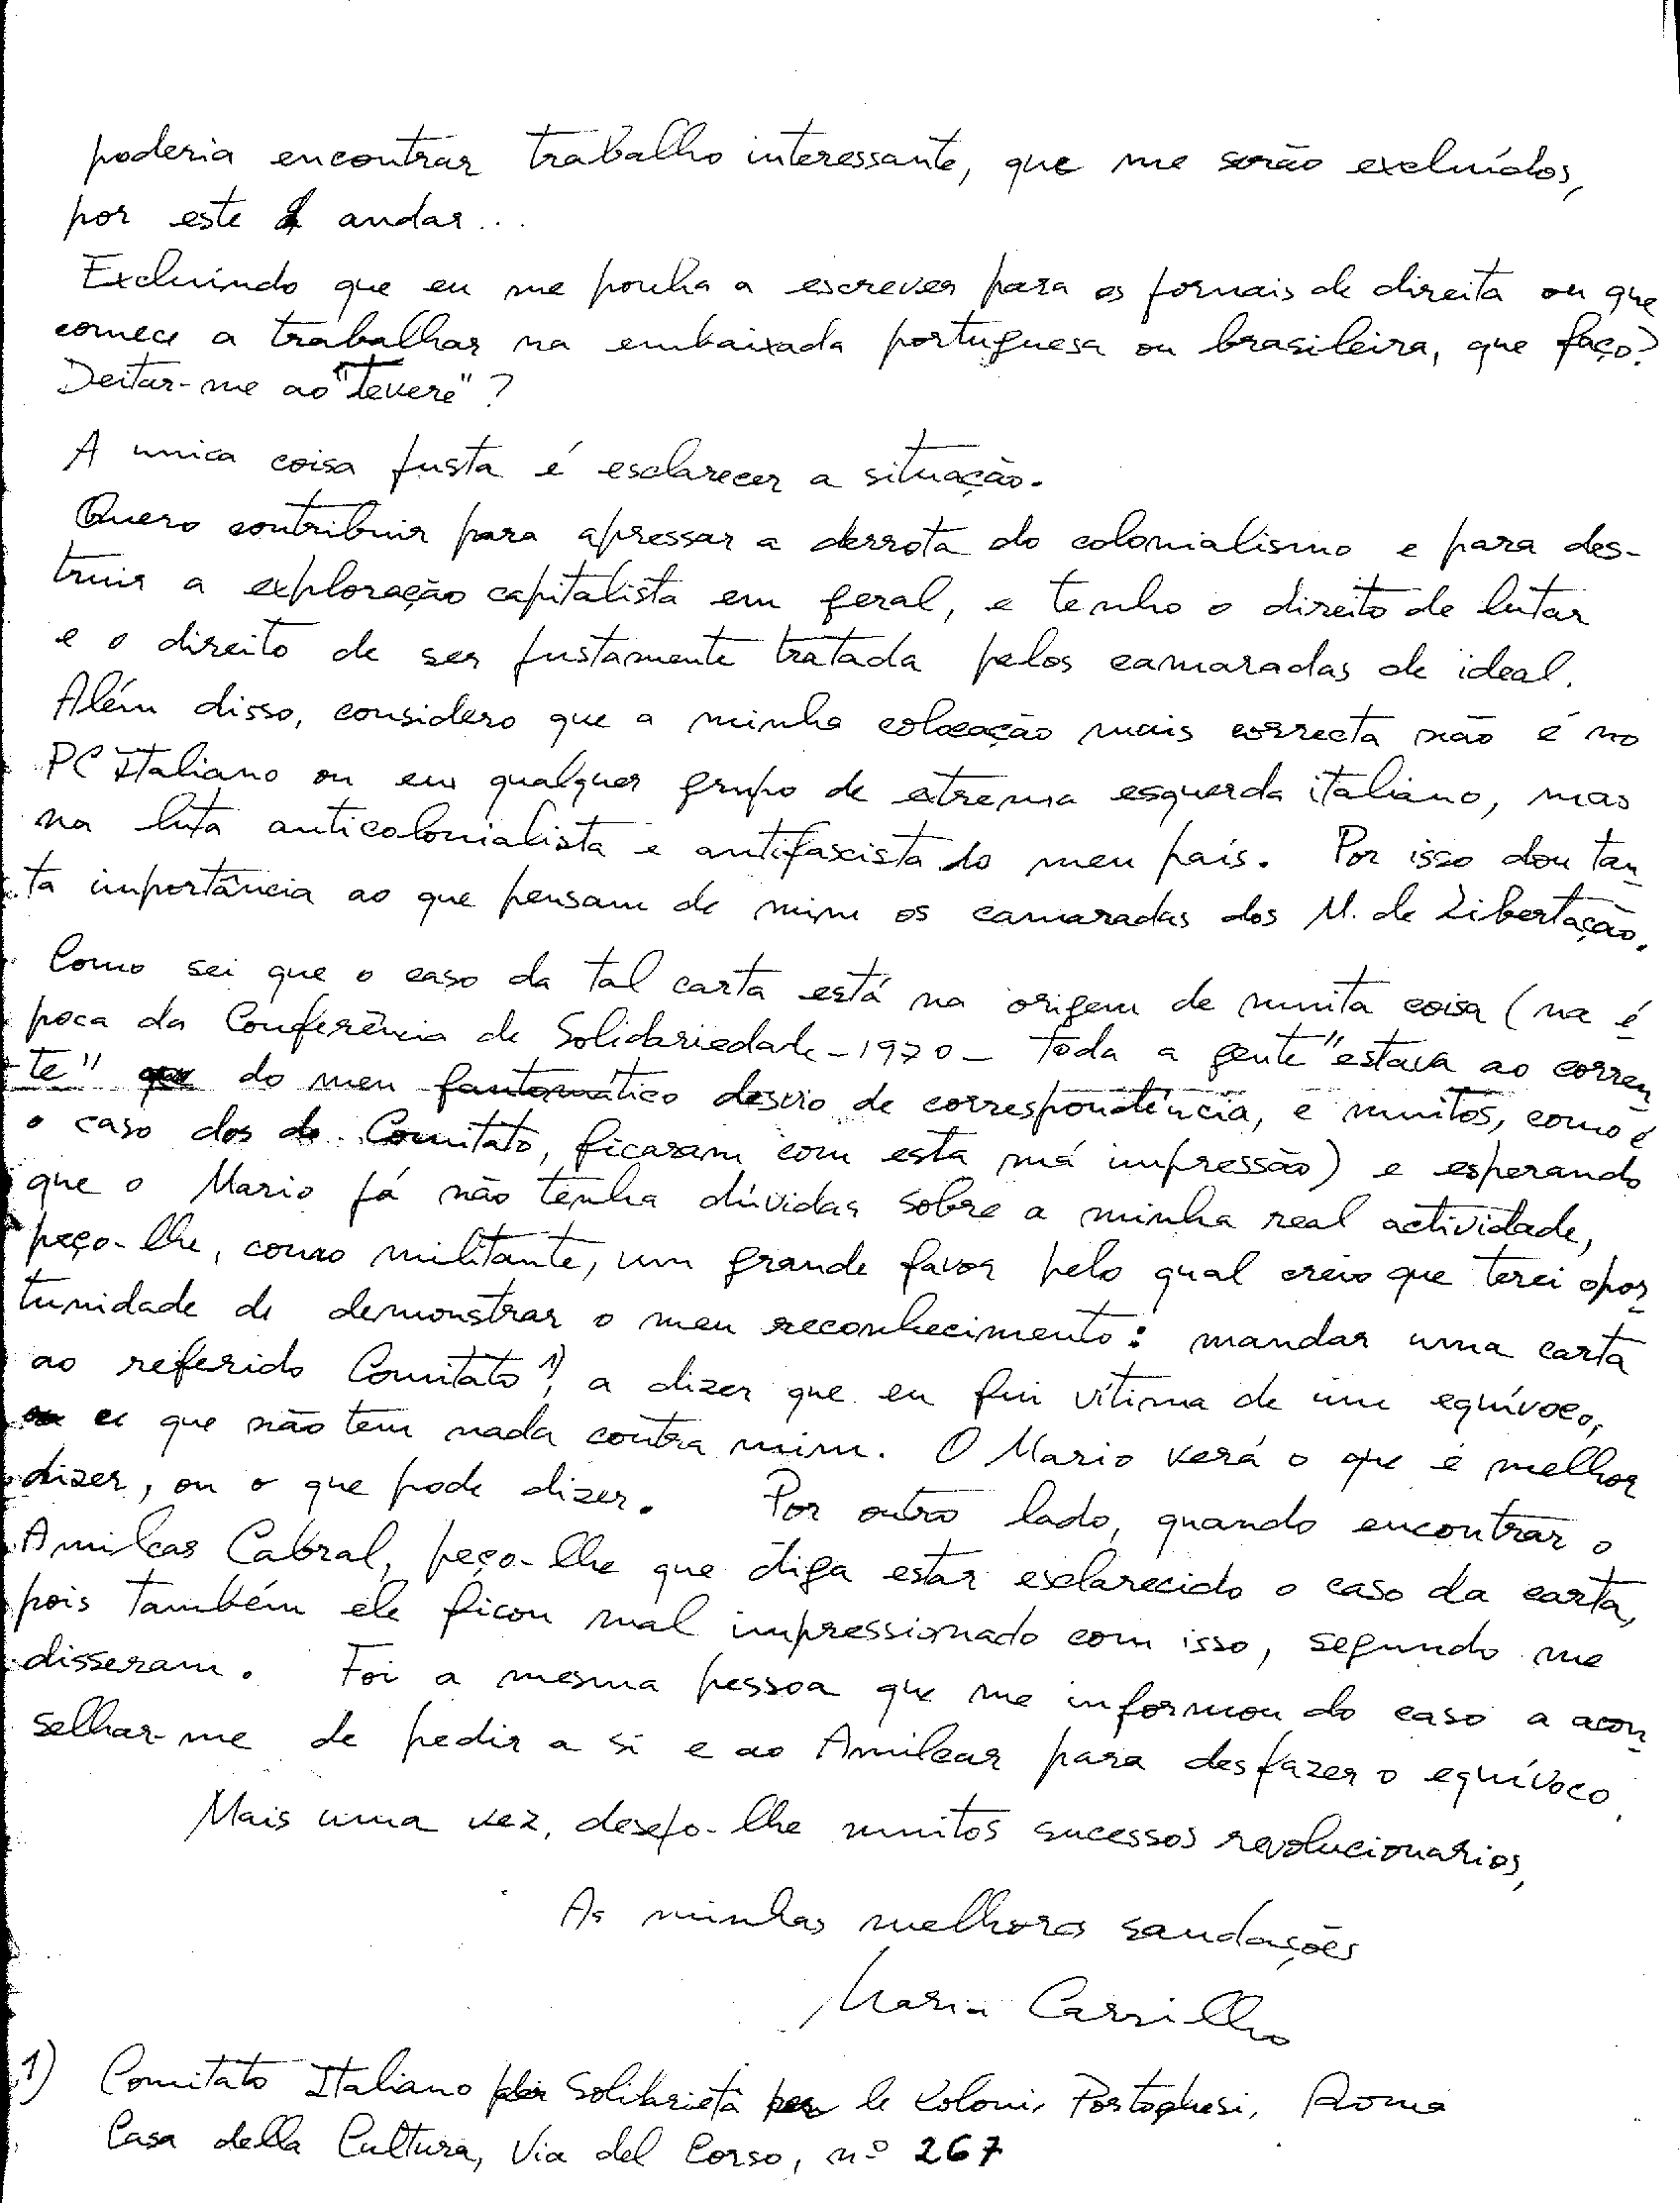 poderia encontrar trabalho interessante, que me serão excluídos,
por este andar...
Excluindo que eu me ponha a escrever para os jornais de direita ou que
comece a trabalhar na embaixada portuguesa ou brasileira, que faço?
Deitar-me ao "Tevere"?
A unica coisa justa é esclarecer a situação.
Quero contribuir para apressar a derrota do colonialismo e para des-
truir a exploração capitalista em geral, e tenho o direito de lutar
e o direito de ser justamente tratada pelos camaradas de ideal.
Além disso, considero que a minha colocação mais correcta não é no
PC Italiano ou em qualquer grupo de extrema esquerda italiano, mas
na luta anticolonialista e antifascista do meu país. Por isso dou tan-
ta importância ao que pensam de mim os camaradas dos M. de Libertação.
Como sei que o caso da tal carta está na origem de muita coisa (na é
poca da Conferência de Solidariedade - 1970 - toda a gente "estava ao corren-
te" do meu fantomático desvio de correspondência, e muitos, como é
o caso dos do Comitato, ficaram com esta má impressão) e esperando
que o Mario já não tenha dúvidas sobre a minha real actividade,
peço-lhe, como militante, um grande favor pelo qual creio que terei opor-
tunidade de demonstrar o meu reconhecimento: mandar uma carta
ao referido Comitato 1), a dizer que eu fui vítima de um equívoco,
e que não tem nada contra mim. O Mario verá o que é melhor
dizer, ou o que pode dizer. Por outro lado, quando encontrar o
Amilcar Cabral, peço-lhe que diga estar esclarecido o caso da carta,
pois também ele ficou mal impressionado com isso, segundo me
disseram. Foi a mesma pessoa que me informou do caso a acon-
selhar-me de pedir a si e ao Amilcar para desfazer o equívoco.
Mais uma vez, desejo-lhe muitos sucessos revolucionarios,
As minhas melhores saudações
Maria Carrilho
1) Comitato Italiano Solidarietà per le Koloni Portoghesi, Roma
Casa della Cultura, Via del Corso, nº 267